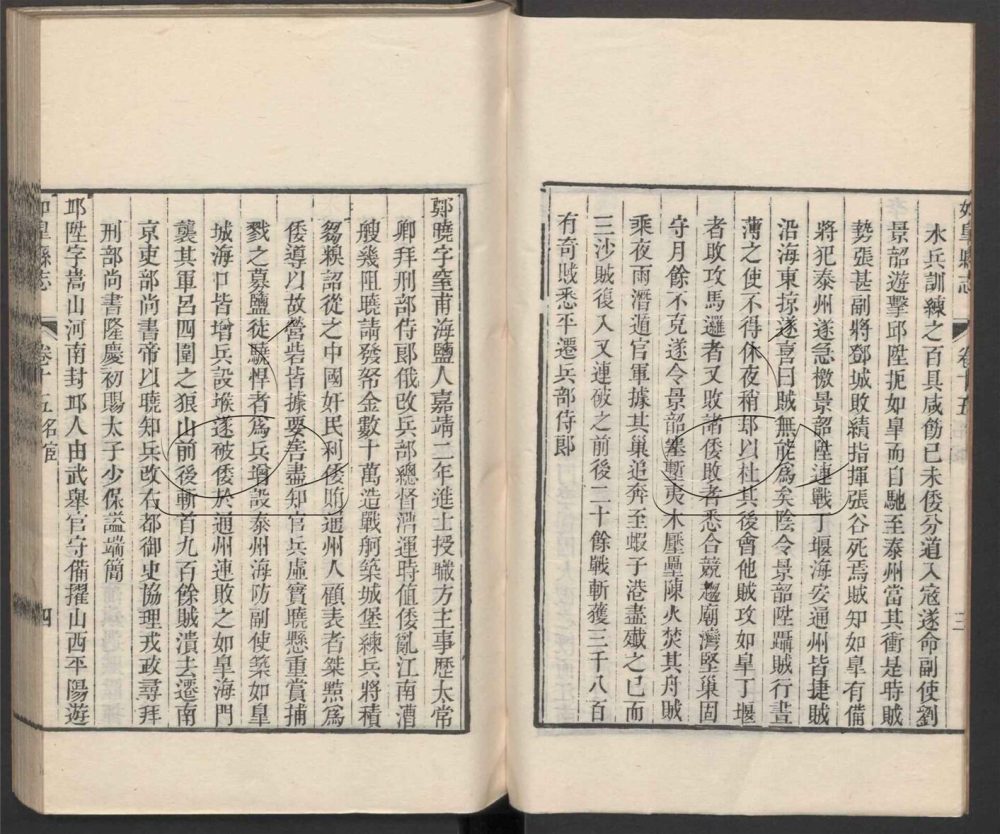 如皋縣志 卷十五 名宦 三
水兵訓練之百具咸飭己未倭分道入寇遂命副使劉
景韶遊擊邱陞扼如皋而自馳至泰州當其衝是時賊
勢張甚副將鄧城敗績指揮張谷死焉賊知如皋有備
將犯泰州遂急檄景韶陞連戰丁堰海安通州皆捷賊
沿海東掠遂喜曰賊無能為矣陰令景韶陞躡賊行晝
薄之使不得休夜稍却以杜其後會他賊攻如皋丁堰
者敗攻馬邏者又敗諸倭敗者悉合競趨廟灣堅巢固
守月餘不克遂令景韶塞塹夷木壓壘陳火焚其舟賊
乘夜雨潛遁官軍據其巢追奔至蝦子港盡殲之已而
三沙賊復入又連破之前後二十餘戰斬獲三千八百
有奇賊悉平遷兵部侍郎
鄭曉字窒甫海鹽人嘉靖二年進士授職方主事歷太常
卿拜刑部侍郎俄改兵部總督漕運時值倭亂江南漕
艘幾阻曉請發帑金數十萬造戰舸築城堡練兵將積
芻糗詔從之中國奸民利倭賄通州人顧表者桀黠為
倭導以故營砦皆據要害盡知官兵虛實曉懸重賞捕
戮之募鹽徒驍悍者為兵增設泰州海防副使築如皋
城海口皆增兵設堠遂破倭於通州連敗之如皋海門
襲其軍呂四圍之狼山前後斬首九百餘賊潰去遷南
京吏部尚書帝以曉知兵改右都御史協理戎政尋拜
刑部尚書隆慶初賜太子少保謚端簡
邱陞字嵩山河南封邱人由武舉官守備擢山西平陽遊
如皋縣志 卷十五 名宦 四